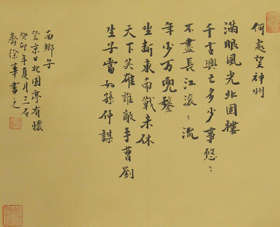 何處望神州
滿眼風光北固樓
千古興亡多少事悠〻
不盡長江滾〻流
年少萬兜鍪
坐斷東南戰未休
天下英雄誰敵手曹劉
生子當如孫仲謀
南鄉子
登京口北固亭有懷
癸卯年夏月三石
齋徐華書之